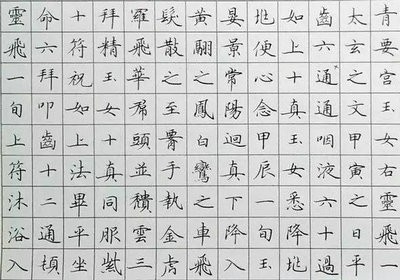 青要宮玉女右靈飛一
太玄之文甲寅之日平
齒六通通咽液六十過
如上十真玉女悉降兆
兆便心念甲辰一旬玉
晏景常陽迴真下降入
黃翮之鳳白鸞之車飛
髮散之至手執金虎
羅飛華帬頭並穨雲三
拜精玉女十真同服紫
十符祝如上法畢平坐
命六拜叩齒十二通頓
靈飛一旬上符沐浴入